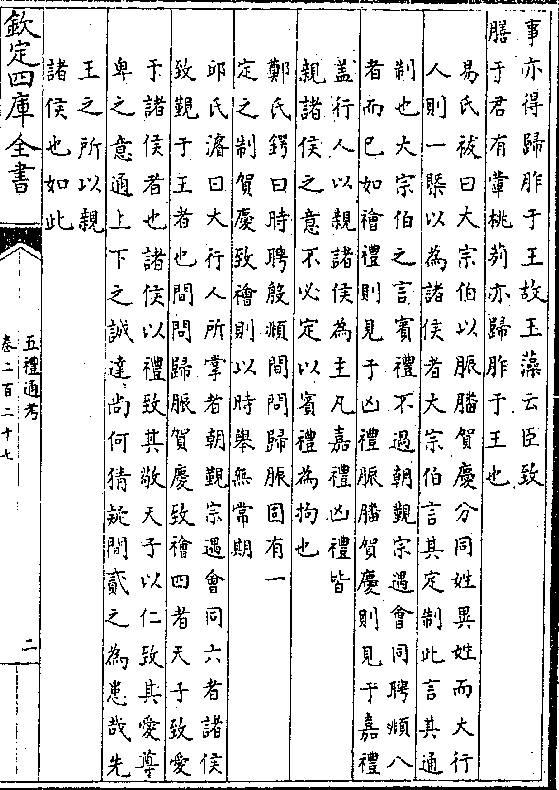 事亦得歸胙于王故玉藻云臣致
膳于君有葷桃茢亦歸胙于王也
易氏祓曰大宗伯以脤膰賀慶分同姓異姓而大行
人則一槩以為諸侯者大宗伯言其定制此言其通
制也大宗伯之言賓禮不過朝覲宗遇會同聘頫八
者而已如禬禮則見于凶禮脤膰賀慶則見于嘉禮
盖行人以親諸侯為主凡嘉禮凶禮皆
親諸侯之意不必定以賓禮為拘也
鄭氏鍔曰時聘殷頫間問歸脤固有一
定之制賀慶致禬則以時舉無常期
邱氏濬曰大行人所掌者朝覲宗遇會同六者諸侯
致覲于王者也間問歸脤賀慶致禬四者天子致愛
于諸侯者也諸侯以禮致其敬天子以仁致其愛尊
卑之意通上下之誠達尚何猜疑間貳之為患哉先
王之所以親
諸侯也如此
欽定四庫全書
五禮通考
卷二百二十七
二